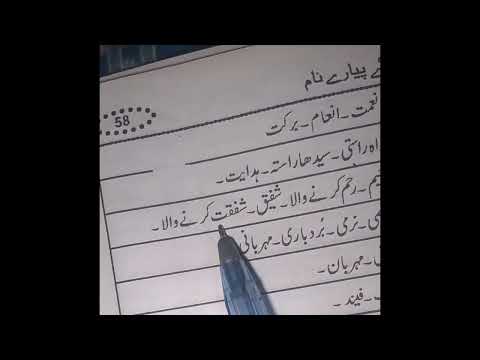 پیارے نام
58
نعمت۔ انعام۔ برکت
اور استی۔ سیدھا راستہ۔ ہدایت۔
رحم کرنے والا۔ شفیق۔ شفقت کرنے والا۔
نرمی۔ بُردباری۔ مہربانی
مہربان۔